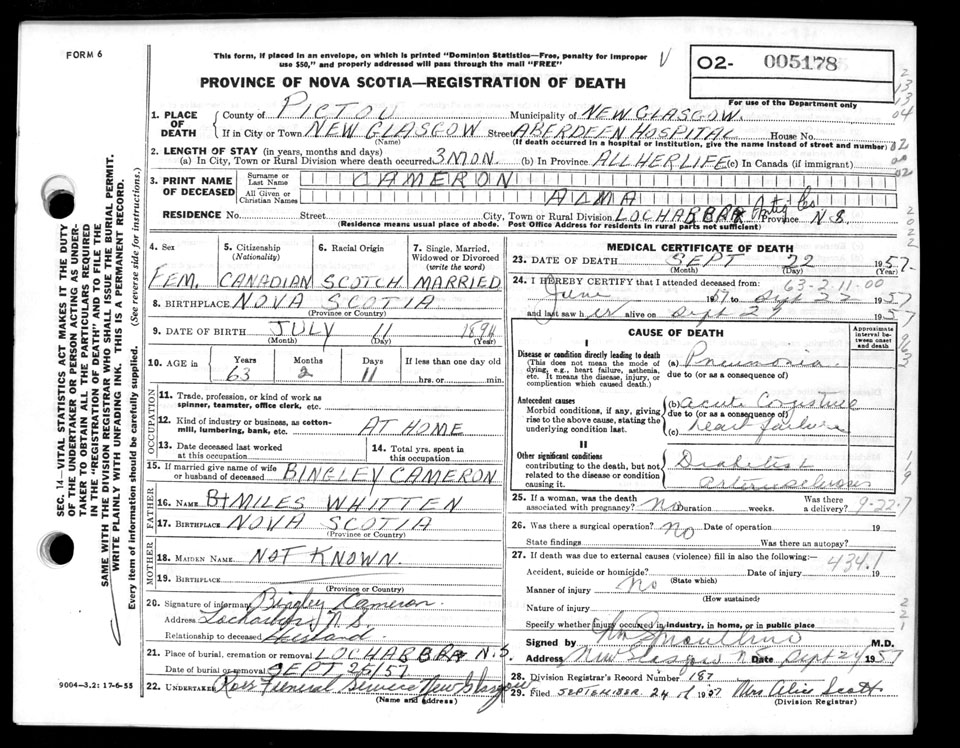 FORM 6
This form, if placed in an envelope, on which is printed "Dominion Statistics—Free, penalty for improper
use $50," and properly addressed will pass through the mail "FREE"
V
O2- 005178
For use of the Department only
PROVINCE OF NOVA SCOTIA—REGISTRATION OF DEATH
1. PLACE OF DEATH
County of PICTOU Municipality of NEW GLASGOW.
If in City or Town NEW GLASGOW Street ABERDEEN HOSPITAL House No.
(Name) (If death occurred in a hospital or institution, give the name instead of street and number)
2. LENGTH OF STAY (in years, months and days)
(a) In City, Town or Rural Division where death occurred 3 MON. (b) In Province ALL HER LIFE (c) In Canada (if immigrant)
3. PRINT NAME OF DECEASED
Surname or Last Name CAMERON
All Given or Christian Names ALMA
RESIDENCE No. Street City, Town or Rural Division LOCHABER Antig Co Province N.S.
(Residence means usual place of abode. Post Office Address for residents in rural parts not sufficient)
4. Sex 5. Citizenship (Nationality) 6. Racial Origin 7. Single, Married, Widowed or Divorced (write the word)
FEM. CANADIAN SCOTCH MARRIED
8. BIRTHPLACE NOVA SCOTIA
(Province or Country)
9. DATE OF BIRTH JULY 11 1894
(Month) (Day) (Year)
10. AGE in Years Months Days If less than one day old
63 2 11 hrs. or min.
OCCUPATION
11. Trade, profession, or kind of work as
spinner, teamster, office clerk, etc.
12. Kind of industry or business, as cotton-
mill, lumbering, bank, etc. AT HOME
13. Date deceased last worked
at this occupation
14. Total yrs. spent in
this occupation
15. If married give name of wife
or husband of deceased BINGLEY CAMERON
FATHER
16. Name MILES WHITTEN
17. Birthplace NOVA SCOTIA
(Province or Country)
MOTHER
18. MAIDEN NAME NOT KNOWN.
19. BIRTHPLACE
(Province or Country)
20. Signature of informant Bingley Cameron.
Address Lochaber, N.S.
Relationship to deceased Husband
21. Place of burial, cremation or removal LOCHABER N.S
Date of burial or removal SEPT 25/57
22. UNDERTAKER Ross Funeral Service New Glasgow
(Name and address)
9004—3.2: 17-6-55
SEC. 14—VITAL STATISTICS ACT MAKES IT THE DUTY
OF THE UNDERTAKER OR PERSON ACTING AS UNDER-
TAKER TO OBTAIN ALL THE PARTICULARS REQUIRED
IN THE "REGISTRATION OF DEATH" AND TO FILE THE
SAME WITH THE DIVISION REGISTRAR WHO SHALL ISSUE THE BURIAL PERMIT.
WRITE PLAINLY WITH UNFADING INK. THIS IS A PERMANENT RECORD.
Every item of information should be carefully supplied. (See reverse side for instructions.)
MEDICAL CERTIFICATE OF DEATH
23. DATE OF DEATH SEPT 22 1957
(Month) (Day) (Year)
63-2-11-00
24. I HEREBY CERTIFY that I attended deceased from:
June 1957 to Sept 22 1957
and last saw her alive on Sept 22 1957
CAUSE OF DEATH
Approximate interval between onset and death
I
Disease or condition directly leading to death
(This does not mean the mode of
dying, e.g., heart failure, asthenia,
etc. It means the disease, injury, or
complication which caused death.)
(a) Pneumonia
due to (or as a consequence of)
Antecedent causes
Morbid conditions, if any, giving
rise to the above cause, stating the
underlying condition last.
(b) acute Congestive
due to (or as a consequence of)
(c) heart failure
II
Other significant conditions
contributing to the death, but not
related to the disease or condition
causing it.
Diabetes &
arteriosclerosis
25. If a woman, was the death
associated with pregnancy? No Duration weeks. Was there
a delivery? 9-22-7
26. Was there a surgical operation? No Date of operation 19
State findings Was there an autopsy?
27. If death was due to external causes (violence) fill in also the following:
434.1
Accident, suicide or homicide? Date of injury 19
(State which)
Manner of injury No
(How sustained)
Nature of injury
Specify whether injury occurred in industry, in home, or in public place
Signed by M.D.
Address New Glasgow N.S. Date Sept 24 1957
28. Division Registrar's Record Number 187
29. Filed SEPTEMBER 24 1957 Mrs Alice Scott
(Division Registrar)